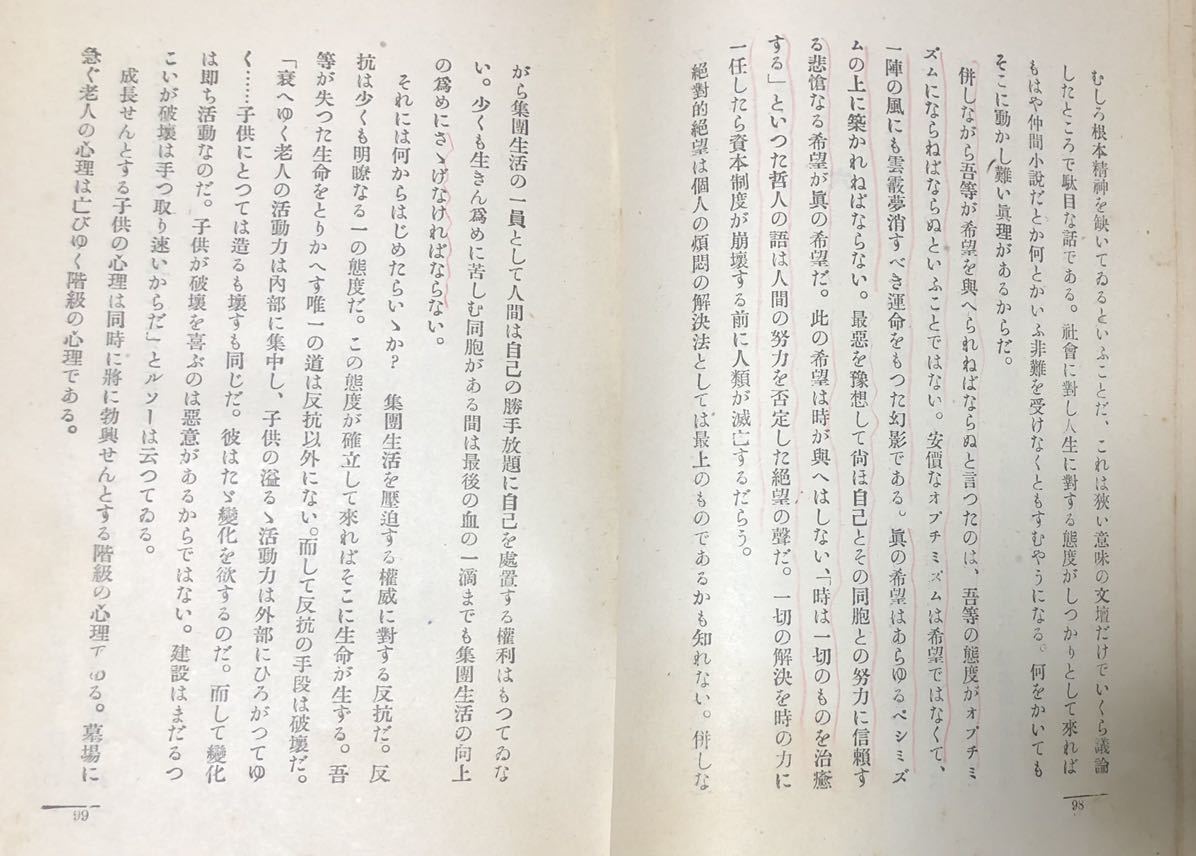 むしろ根本精神を缺いてゐるといふことだ、これは狹い意味の文壇だけでいくら議論
したところで駄目な話である。社會に對し人生に對する態度がしつかりとして來れば
もはや仲間小説だとか何とかいふ非難を受けなくともすむやうになる。何をかいても
そこに動かし難い眞理があるからだ。
併しながら吾等が希望を與へられねばならぬと言つたのは、吾等の態度がオプチミ
ズムにならねばならぬといふことではない。安價なオプチミズムは希望ではなくて、
一陣の風にも雲霰夢消すべき運命をもつた幻影である。眞の希望はあらゆるペシミズ
ムの上に築かれねばならない。最惡を豫想して尙ほ自己とその同胞との努力に信賴す
る悲愴なる希望が眞の希望だ。此の希望は時が與へはしない、「時は一切のものを治癒
する」といつた哲人の語は人間の努力を否定した絶望の聲だ。一切の解決を時の力に
一任したら資本制度が崩壞する前に人類が滅亡するだらう。
絶對的絶望は個人の煩悶の解決法としては最上のものであるかも知れない。併しな
98
がら集團生活の一員として人間は自己の勝手放題に自己を處置する權利はもつてゐな
い。少くも生きん爲めに苦しむ同胞がある間は最後の血の一滴までも集團生活の向上
の爲めにさゝげなければならない。
それには何からはじめたらいゝか？　集團生活を壓迫する權威に對する反抗だ。反
抗は少くも明瞭なる一の態度だ。この態度が確立して來ればそこに生命が生する。吾
等が失つた生命をとりかへす唯一の道は反抗以外にない。而して反抗の手段は破壞だ。
「衰へゆく老人の活動力は內部に集中し、子供の溢るゝ活動力は外部にひろがつてゆ
く……子供にとつては造るも壞すも同じだ。彼はたゞ變化を欲するのだ。而して變化
は即ち活動なのだ。子供が破壞を喜ぶのは惡意があるからではない。建設はまだるつ
こいが破壞は手つ取り速いからだ」とルソーは云つてゐる。
成長せんとする子供の心理は同時に將に勃興せんとする階級の心理である。墓場に
急ぐ老人の心理は亡びゆく階級の心理である。
99